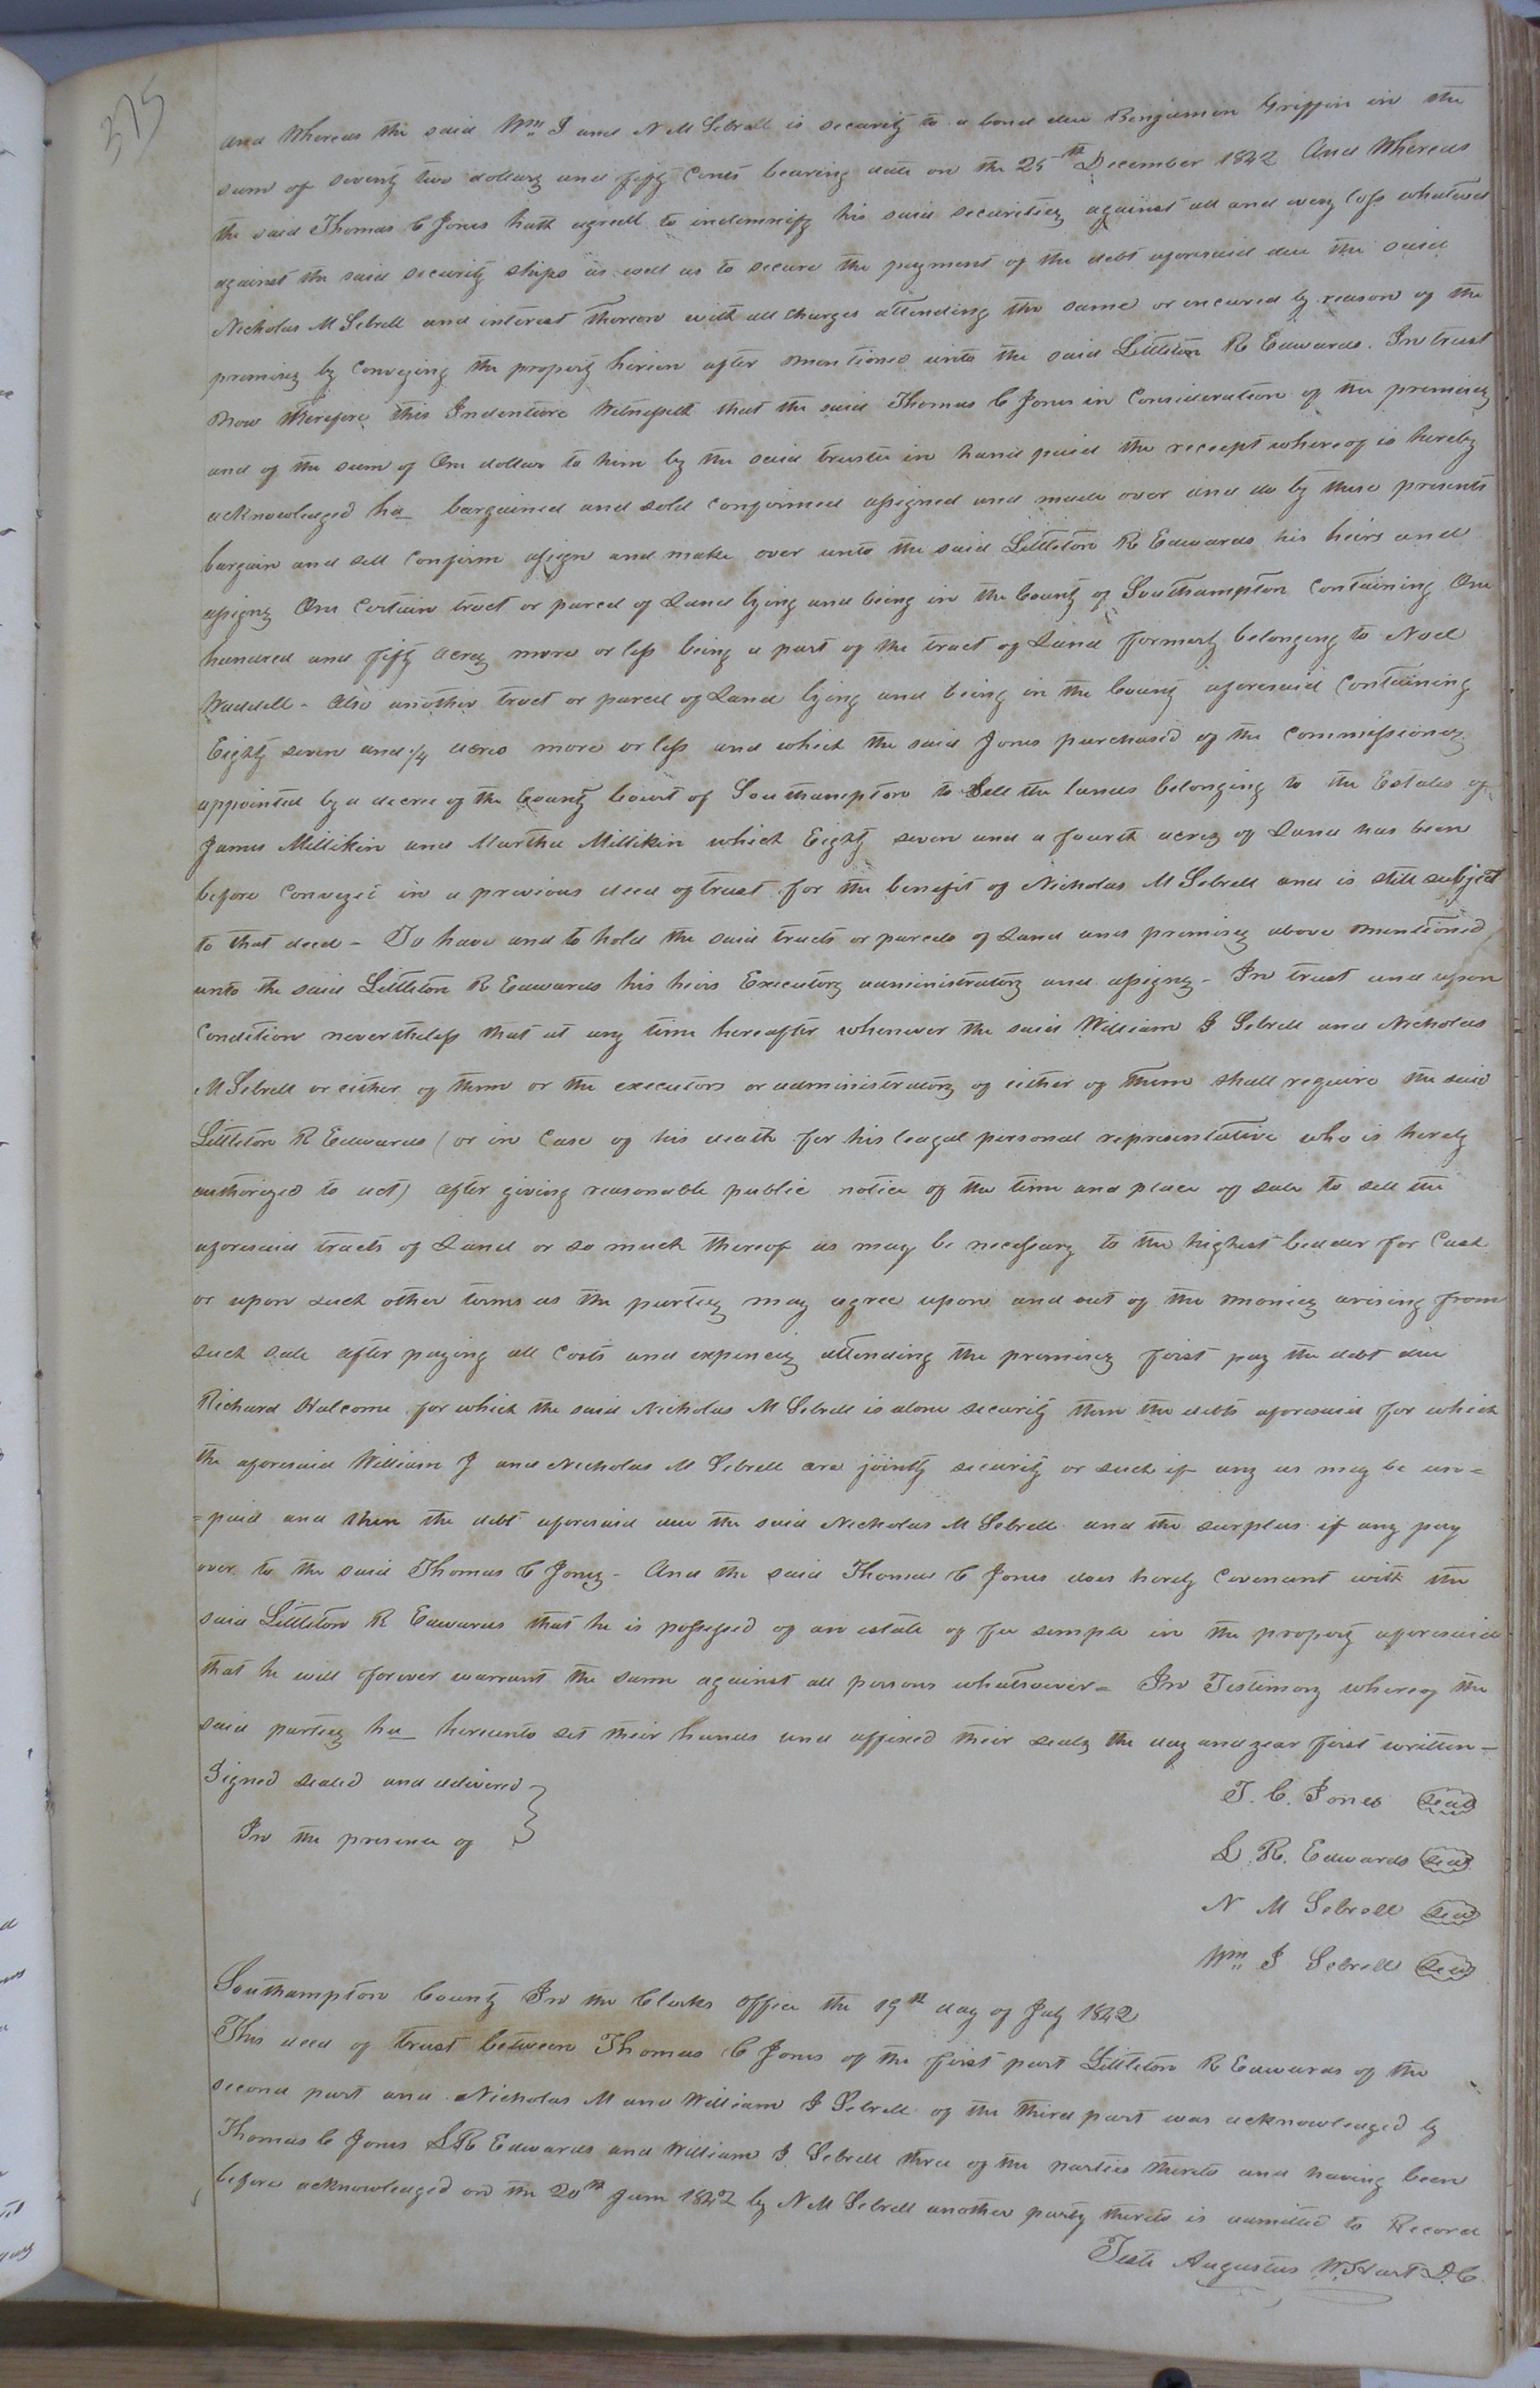 375
and Whereas the said Wm J and N M Sebrell is security to a bond due Benjamin Griffin in the
sum of seventy two dollars and fifty Cents bearing date on the 25th December 1842 And Whereas
the said Thomas C Jones hath agreed to indemnify his said securities against all and every loss whatever
against the said security ships as well as to secure the payment of the debt aforesaid due the said
Nicholas M Sebrell and interest thereon with all charges attending the same or incured by reason of the
premises by Conveying the property herein after mentioned unto the said Littleton R Edwards. In trust
Now therefore this Indenture Witnesseth that the said Thomas C Jones in Consideration of the premises
and of the sum of One dollar to him by the said trustee in hand paid the receipt whereof is hereby
acknowledged ha_ bargained and sold confirmed assigned and made over and do by these presents
bargain and sell confirm assign and make over unto the said Littleton R Edwards his heirs and
assigns One Certain tract or parcel of Land lying and being in the County of Southampton Containing One
hundred and fifty acres more or less being a part of the tract of Land formerly belonging to Noel
Waddell - Also another tract or parcel of Land lying and being in the County aforesaid Containing
Eighty seven and 1/4 acres more or less and which the said Jones purchased of the Commissioners
appointed by a decree of the County Court of Southampton to Sell the lands belonging to the Estates of
James Millikin and Martha Millikin which Eighty seven and a fourth acres of Land has been
before Conveyed in a previous deed of trust for the benefit of Nicholas M Sebrell and is still subject
to that deed - To have and to hold the said tracts or parcels of Land and premises above mentioned
unto the said Littleton R Edwards his heirs Executors administrators and assigns - In trust and upon
Condition nevertheless that at any time hereafter whenever the said William J Sebrell and Nicholas
M Sebrell or either of them or the executors or administrators of either of them shall require the said
Littleton R Edwards (or in Case of his death for his leagal personal representative who is hereby
authorized to act) after giving reasonable public notice of the time and place of sale to sell the
aforesaid tracts of Land or so much thereof as may be necessary to the highest beader for Cash
or upon such other terms as the parties may agree upon and out of the monies arising from
such sale after paying all Costs and expences attending the premises first pay the debt due
Richard Halcome for which the said Nicholas M Sebrell is alone security then the debts aforesaid for which
the aforesaid William J and Nicholas M Sebrell are jointly security or such if any as may be un=
=paid and then the debt aforesaid due the said Nicholas M Sebrell and the surplus if any pay
over to the said Thomas C Jones - And the said Thomas C Jones does hereby Covenant with the
said Littleton R Edwards that he is possessed of an estate of fee simple in the property aforesaid
that he will forever warrant the same against all persons whatsoever = In Testimony whereof the
said parties ha_ hereunto set their hands and affixed their seals the day and year first written -
Signed sealed and delivered
In the presence of
T. C. Jones seal
L. R. Edwards seal
N M Sebrell seal
Wm J Sebrell seal
Southampton County In the Clerks Office the 19th day of July 1842
This deed of trust between Thomas C Jones of the first part Littleton R Edwards of the
second part and Nicholas M and William J Sebrell of the third part was acknowledged by
Thomas C Jones L R Edwards and William J Sebrell three of the parties thereto and having been
before acknowledged on the 20th June 1842 by N M Sebrell another party thereto is admitted to Record
Teste Augustus W. Hart D.C.